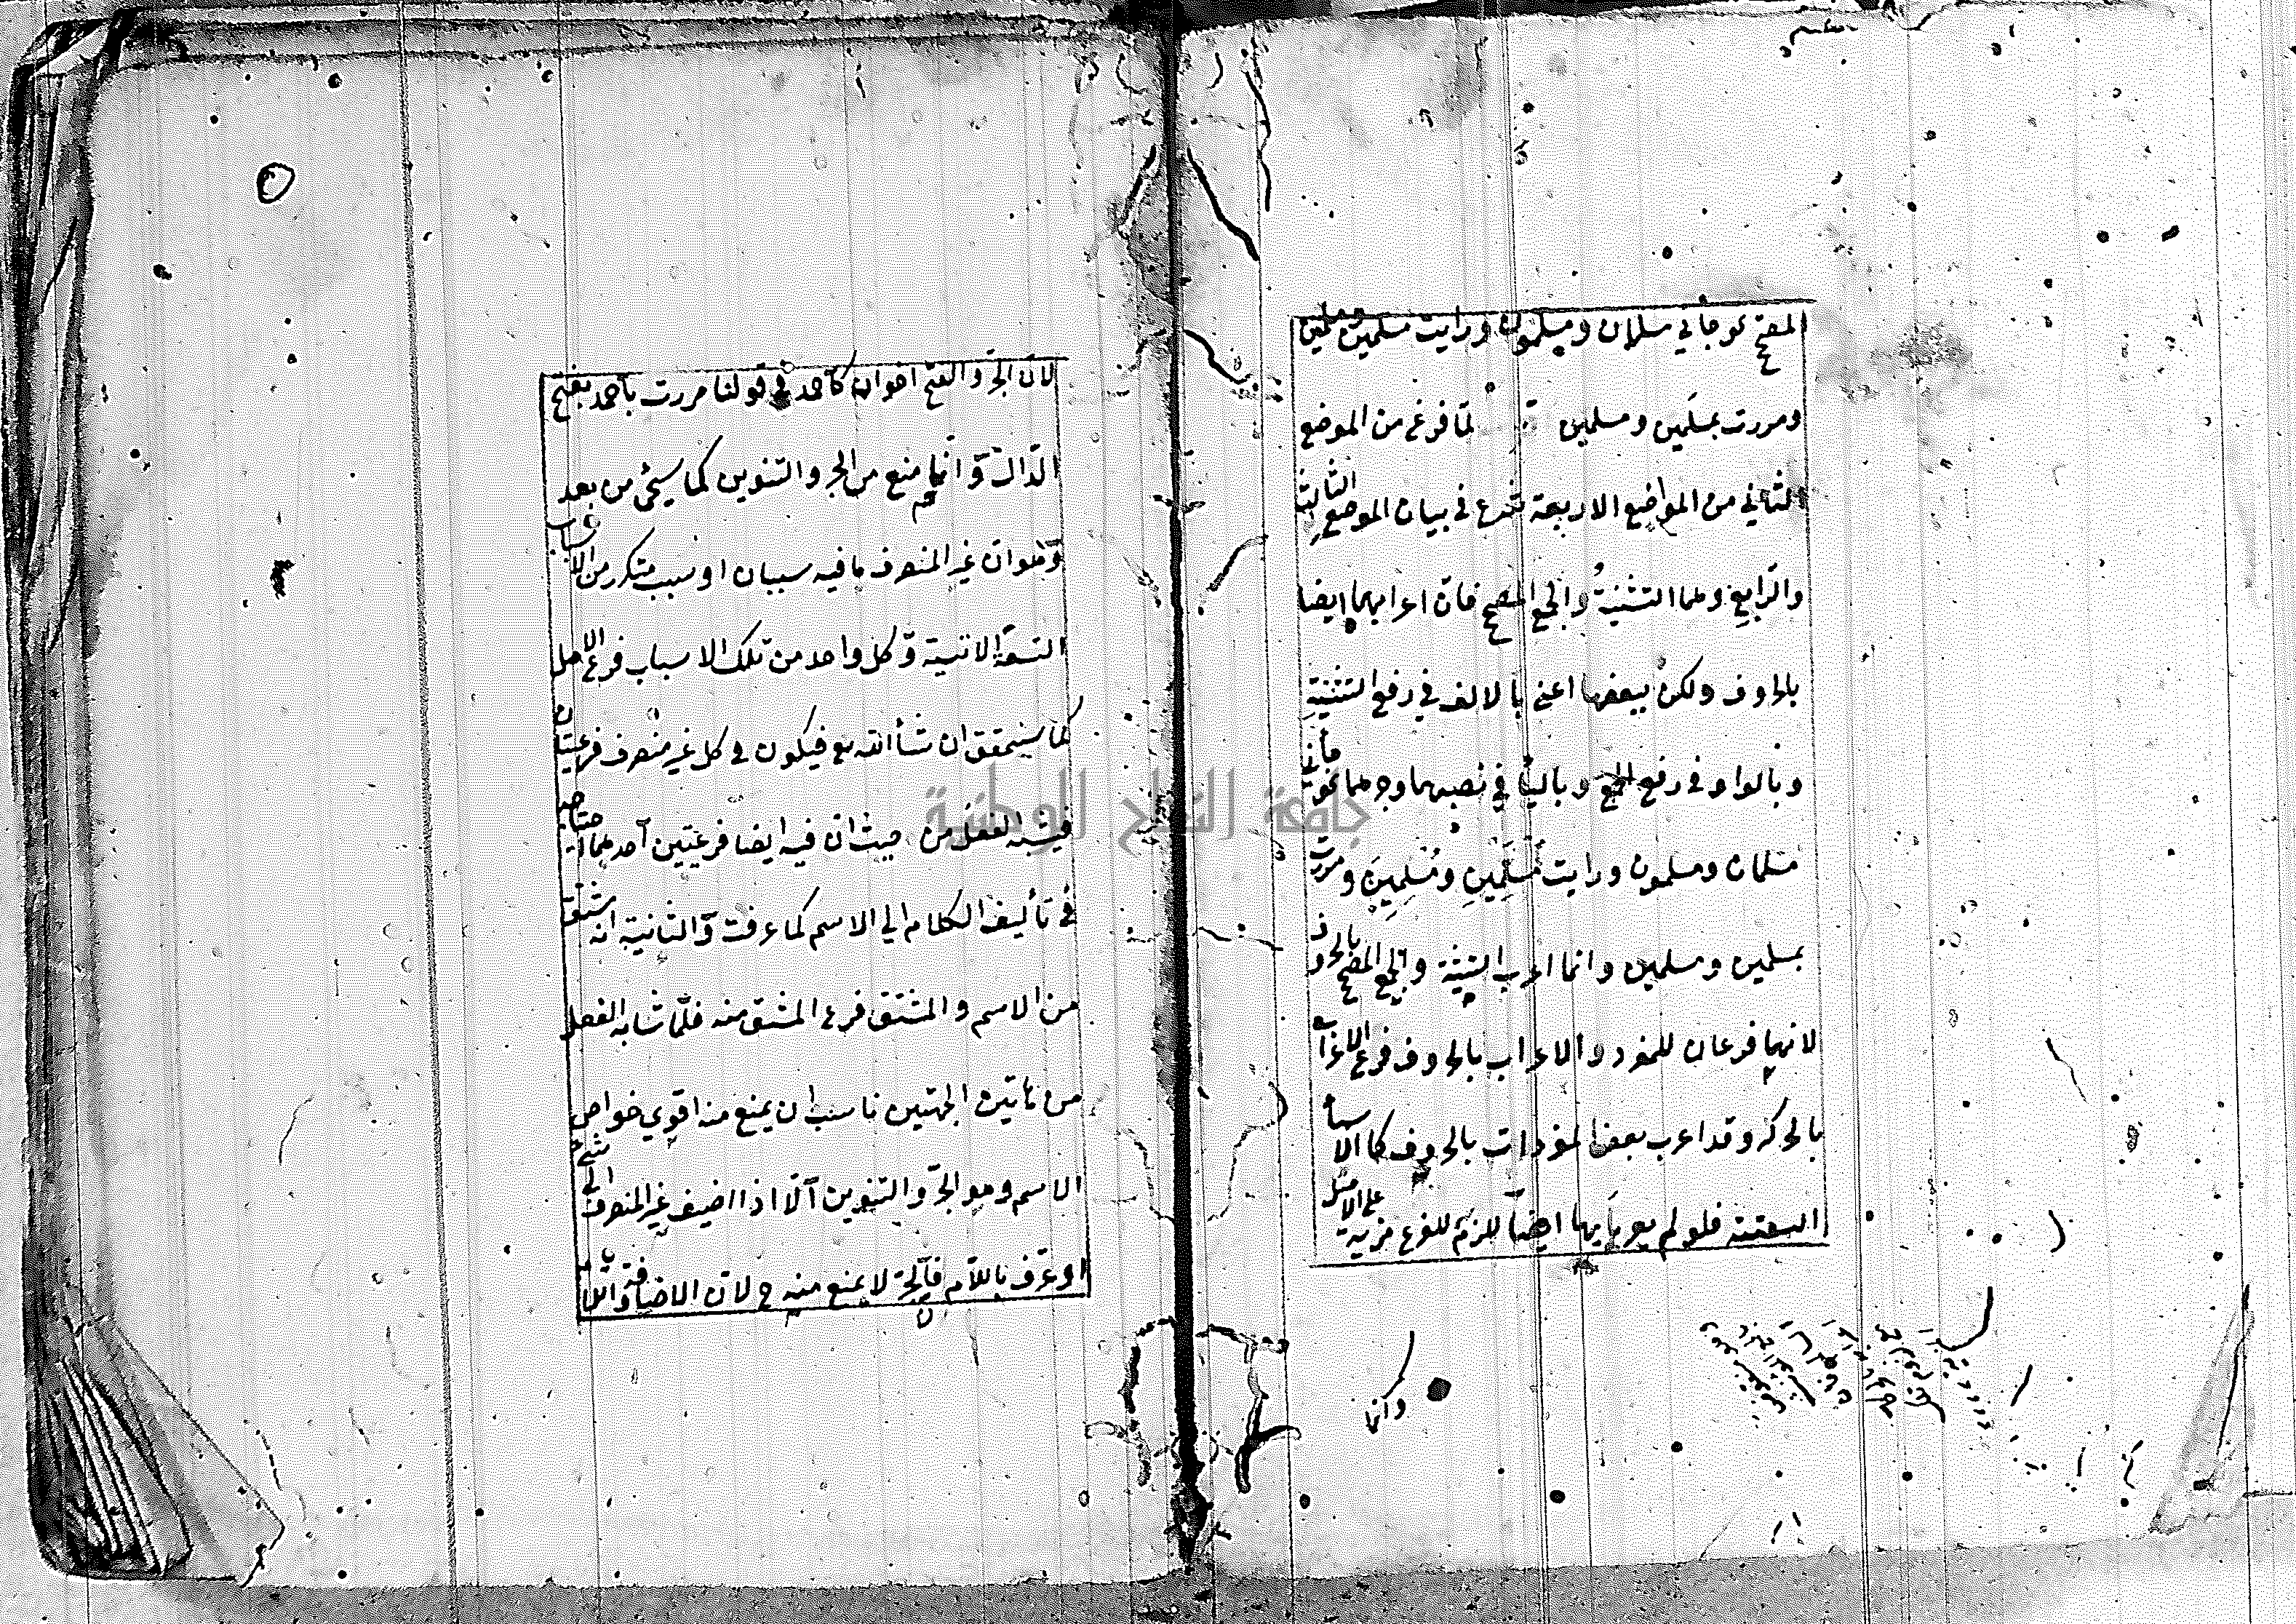 المصحح نحو جاني مسلمان ومسلمون ورايت مسلمين ومسلمين
ومررت بمسلمين ومسلمين لمّا فرغ من الموضع
الثاني من المواضع الاربعة شرع في بيان الموضع الثالث
والرّابع وهما التثنية والجمع المصحح فانّ اعرابهما ايضا
بالحروف ولكن ببعضها اعني بالالف في رفع التثنية
وبالواو في رفع الجمع وباليا في نصبهما وجرهما نحو جأني
مسلمان ومسلمون ورايت مُسْلِمَيْنِ ومُسْلِمِينَ ومررت
بمسلمين ومسلمين وانما اعرب التثنية والجمع المصحح بالحروف
لانهما فرعان للمفرد والاعراب بالحروف فرع الاعراب
بالحركة وقد اعرب بعض المفردات بالحروف كما الاسمأ
الستة فلو لم يعربا بها ايضا للزم للفرع مزية على الاصل
وانما
لانّ الجرّ والفتح اخوان كأحمد في قولنا مررت بأحمد بفتح
الدّال وّانّما منع من الجر والتنوين كما سيجئ من بعد
وّهو انّ غير المنصرف ما فيه سببان او سبب متكرر من الاسباب
التسعة الاتية وّكل واحد من تلك الاسباب فرع الاصل
كما سيتحقق ان شأ الله تع فيكون في كل غير منصرف فرعيتان
فيشبه الفعل من حيث انّ فيه ايضا فرعيّتين آحدهما احتياجه
في تأليف الكلام الي الاسم كما عرفت وّالثانية انه مشتق
من الاسم والمشتق فرع المشتق منه فلمّا شابه الفعل
من هاتين الجهتين ناسب ان يمنع منه اقوي خواص
الاسم وهو الجرّ والتنوين آلّا اذا اضيف غير المنصرف الي شئ
او عرّف باللّام فآلجرّ لا يمنع منه ح لانّ الاضافة واللا